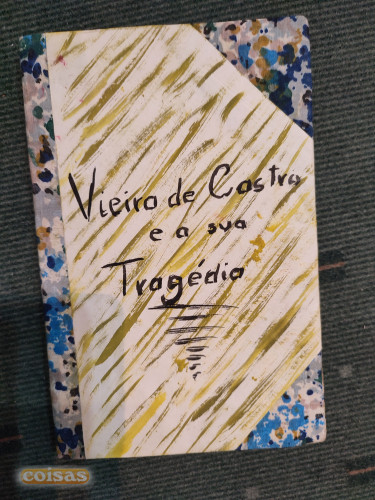 Vieira de Castro
e a sua
Tragédia
coisas